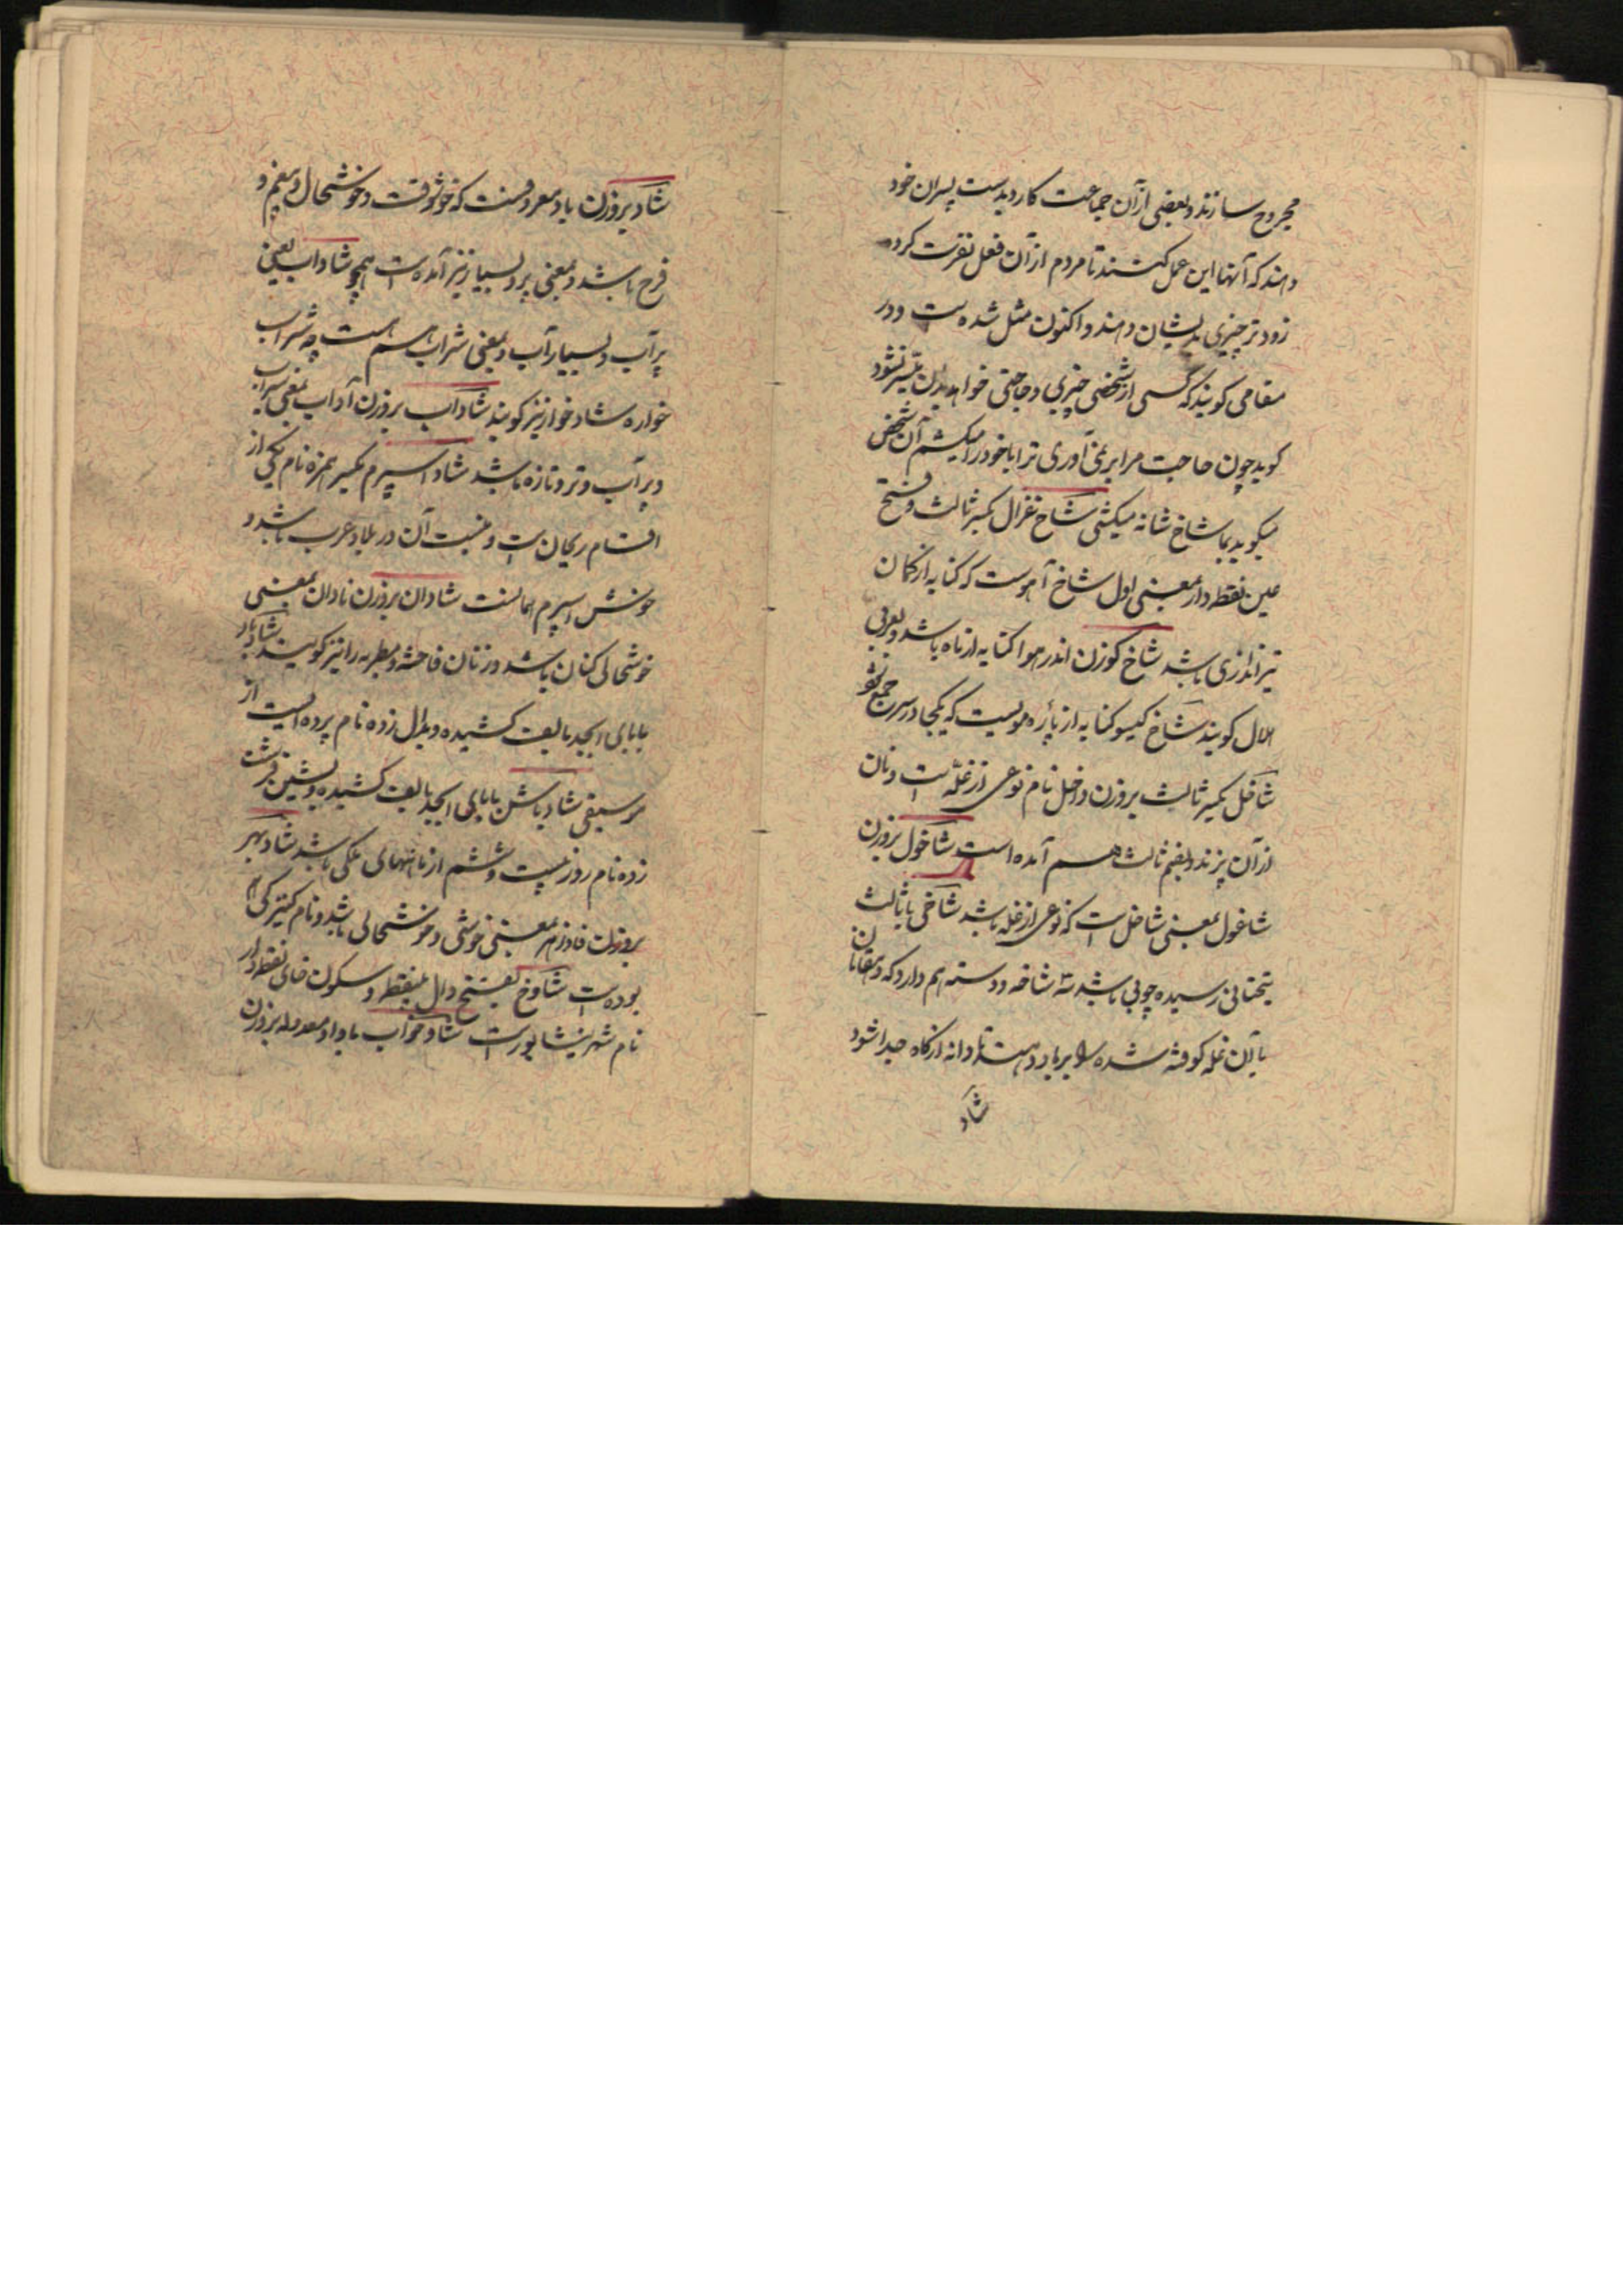 مجروح سازند و بعضی ازآن جماعت کارد بدست پسران خود
دهند که آنها این عمل کنند تا مردم از آن فعل نفرت کرده
زودتر چیزی بدیشان دهند و اکنون مثل شده است و در
مقامی کویند که کسی از شخصی چیزی و حاجتی خواهد بدان میسر نشود
کوید چون حاجت مرا بر نمی آوری ترا یا خود را میکشم آن شخص
میکوید بما شاخ شانه میکشی شاخ غزال بکسر ثالث و فتح
عین نقطه دار بمعنی اول شاخ آهوست که کنایه از کمان
تیراندازی باشد شاخ کوزن اندر هوا کنایه از ماه باشد و بعربی
هلال کویند شاخ کیسو کنایه از پاره مویست که یکجا در سر جمع شو
شاخل بکسر ثالث بر وزن داخل نام نوعی از غله است و نان
از آن پزند و بضم ثالث هم آمده است شاخول بروزن
شاغول بمعنی شاخل است که نوعی از غله باشد شاخی با ثالث
بتحتانی رسیده چوبی باشد سه شاخه و دسته هم دارد که دهقانان
با آن غله کوفته شده را بر باد دهند تا دانه از کاه جدا شود
شاد
شاد بروزن باد معروفست که خوشوقت و خوشحال و بیغم و
فرح باشد و بمعنی پر و بسیار نیز آمده است همچو شاداب یعنی
پر آب و بسیار آب و بمعنی شراب هم هست چه شراب
خواره شاد خوار نیز کویند شاداب بروزن آداب بمعنی سیراب
و پر آب و تر و تازه باشد شاد اسپرم بکسر همزه نام یکی از
اقسام ریحان است و منبت آن در بلاد عرب باشد و
خوش اسپرم همانست شادان بروزن نادان بمعنی
خوشحالی کنان باشد و زنان فاحشه و مطربه را نیز کویند شادباد
با بای ابجد بالف کشیده و بدال زده نام پرده ایست از
موسیقی شادباش با بای ابجد بالف کشیده و بشین قرشت
زده نام روز بیست و ششم از ماههای ملکی باشد شادبهر
بروزن فادزهر بمعنی خوشی و خوشحالی باشد و نام کنیزکی
بوده است شادخ بفتح دال بینقطه و سکون خای نقطه دار
نام شهر نیشابور است شادخواب با واو معدوله بروزن